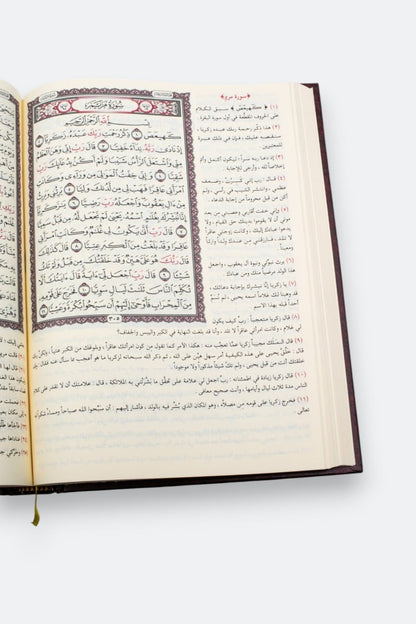 سُورَةُ مَرْيَمَ
بِسْمِ اللَّهِ الرَّحْمَٰنِ الرَّحِيمِ
كٓهيعٓصٓ ١ ذِكْرُ رَحْمَتِ رَبِّكَ عَبْدَهُۥ زَكَرِيَّآ ٢
إِذْ نَادَىٰ رَبَّهُۥ نِدَآءً خَفِيًّا ٣ قَالَ رَبِّ إِنِّي وَهَنَ ٱلْعَظْمُ
مِنِّي وَٱشْتَعَلَ ٱلرَّأْسُ شَيْبًا وَلَمْ أَكُنۢ بِدُعَآئِكَ رَبِّ
شَقِيًّا ٤ وَإِنِّي خِفْتُ ٱلْمَوَٰلِيَ مِن وَرَآءِي وَكَانَتِ
ٱمْرَأَتِي عَاقِرًا فَهَبْ لِي مِن لَّدُنكَ وَلِيًّا ٥ يَرِثُنِي وَيَرِثُ
مِنْ ءَالِ يَعْقُوبَ وَٱجْعَلْهُ رَبِّ رَضِيًّا ٦ يَٰزَكَرِيَّآ إِنَّا
نُبَشِّرُكَ بِغُلَٰمٍ ٱسْمُهُۥ يَحْيَىٰ لَمْ نَجْعَل لَّهُۥ مِن قَبْلُ سَمِيًّا
٧ قَالَ رَبِّ أَنَّىٰ يَكُونُ لِي غُلَٰمٌ وَكَانَتِ ٱمْرَأَتِي
عَاقِرًا وَقَدْ بَلَغْتُ مِنَ ٱلْكِبَرِ عِتِيًّا ٨ قَالَ كَذَٰلِكَ قَالَ
رَبُّكَ هُوَ عَلَيَّ هَيِّنٌ وَقَدْ خَلَقْتُكَ مِن قَبْلُ وَلَمْ تَكُ
شَيْـًٔا ٩ قَالَ رَبِّ ٱجْعَل لِّي ءَايَةً قَالَ ءَايَتُكَ أَلَّا
تُكَلِّمَ ٱلنَّاسَ ثَلَٰثَ لَيَالٍ سَوِيًّا ١٠ فَخَرَجَ عَلَىٰ قَوْمِهِۦ
مِنَ ٱلْمِحْرَابِ فَأَوْحَىٰٓ إِلَيْهِمْ أَن سَبِّحُوا۟ بُكْرَةً وَعَشِيًّا ١١
٣٠٥
﴿سورة مريم﴾
(١) ﴿كهيعص﴾ سبق الكلام
على الحروف المقطعة في أول سورة البقرة
(٢) هذا ذكر رحمة ربك عبده زكريا ،
سنقصه عليك، فإن في ذلك عبرة
للمعتبرين
(٣) إذ دعا ربه سراً؛ ليكون أكمل
وإخلاصاً لله، وأرجى للإجابة.
(٤) قال: رب إني كبرت، وضعف
عظمي، وانتشر الشيب في رأسي، ولم
أكن من قبل محروماً من إجابة الدعاء.
(٥) وإني خفت أقاربي وعصبتي من بعد
موتي أن لا يقوموا بدينك حق القيام، ولا
يدعوا عبادك إليك، وكانت زوجتي عاقراً
لا تلد، فارزقني من عندك ولداً وارثاً
ومعيناً.
(٦) يرث نبوَّتي ونبوة آل يعقوب، واجعل
هذا الولد مرضياً منك ومن عبادك.
(٧) يا زكريا إنا نبشرك بإجابة دعائك،
قد وهبنا لك غلاماً اسمه يحيى، لم نُسَمِّ
أحداً قبله بهذا الاسم
(٨) قال زكريا متعجباً: ربِّ كيف يكون
لي غلام، وكانت امرأتي عاقراً لا تلد، وأنا قد بلغت النهاية في الكبر واليبس والجفاف؟
(٩) قال الملَك مجيباً زكريا عمَّا تعجب منه: هكذا الأمر كما تقول من كون امرأتك عاقراً، وبلوغك من الكبر عتياً، ولكن ربك
قال: خَلْق يحيى على هذه الكيفية أمر سهل هيِّن علي، ثم ذكر الله سبحانه لزكريا ما هو أعجب مما سأل عنه فقال: وقد
خلقتك أنت من قبل يحيى، ولم تك شيئاً مذكوراً ولا موجوداً.
(١٠) قال زكريا زيادة في اطمئنانه: ربِّ اجعل لي علامة على تحقُّق ما بَشَّرَتْني به الملائكة، قال: علامتك أن لا تقدر على كلام
الناس مدة ثلاث ليال وأيامها، وأنت صحيح معافى
(١١) فخرج زكريا على قومه مِن مصلاه، وهو المكان الذي بُشِّر فيه بالولد، فأشار إليهم: أن سَبِّحوا الله صباحاً ومساءً
تعالى